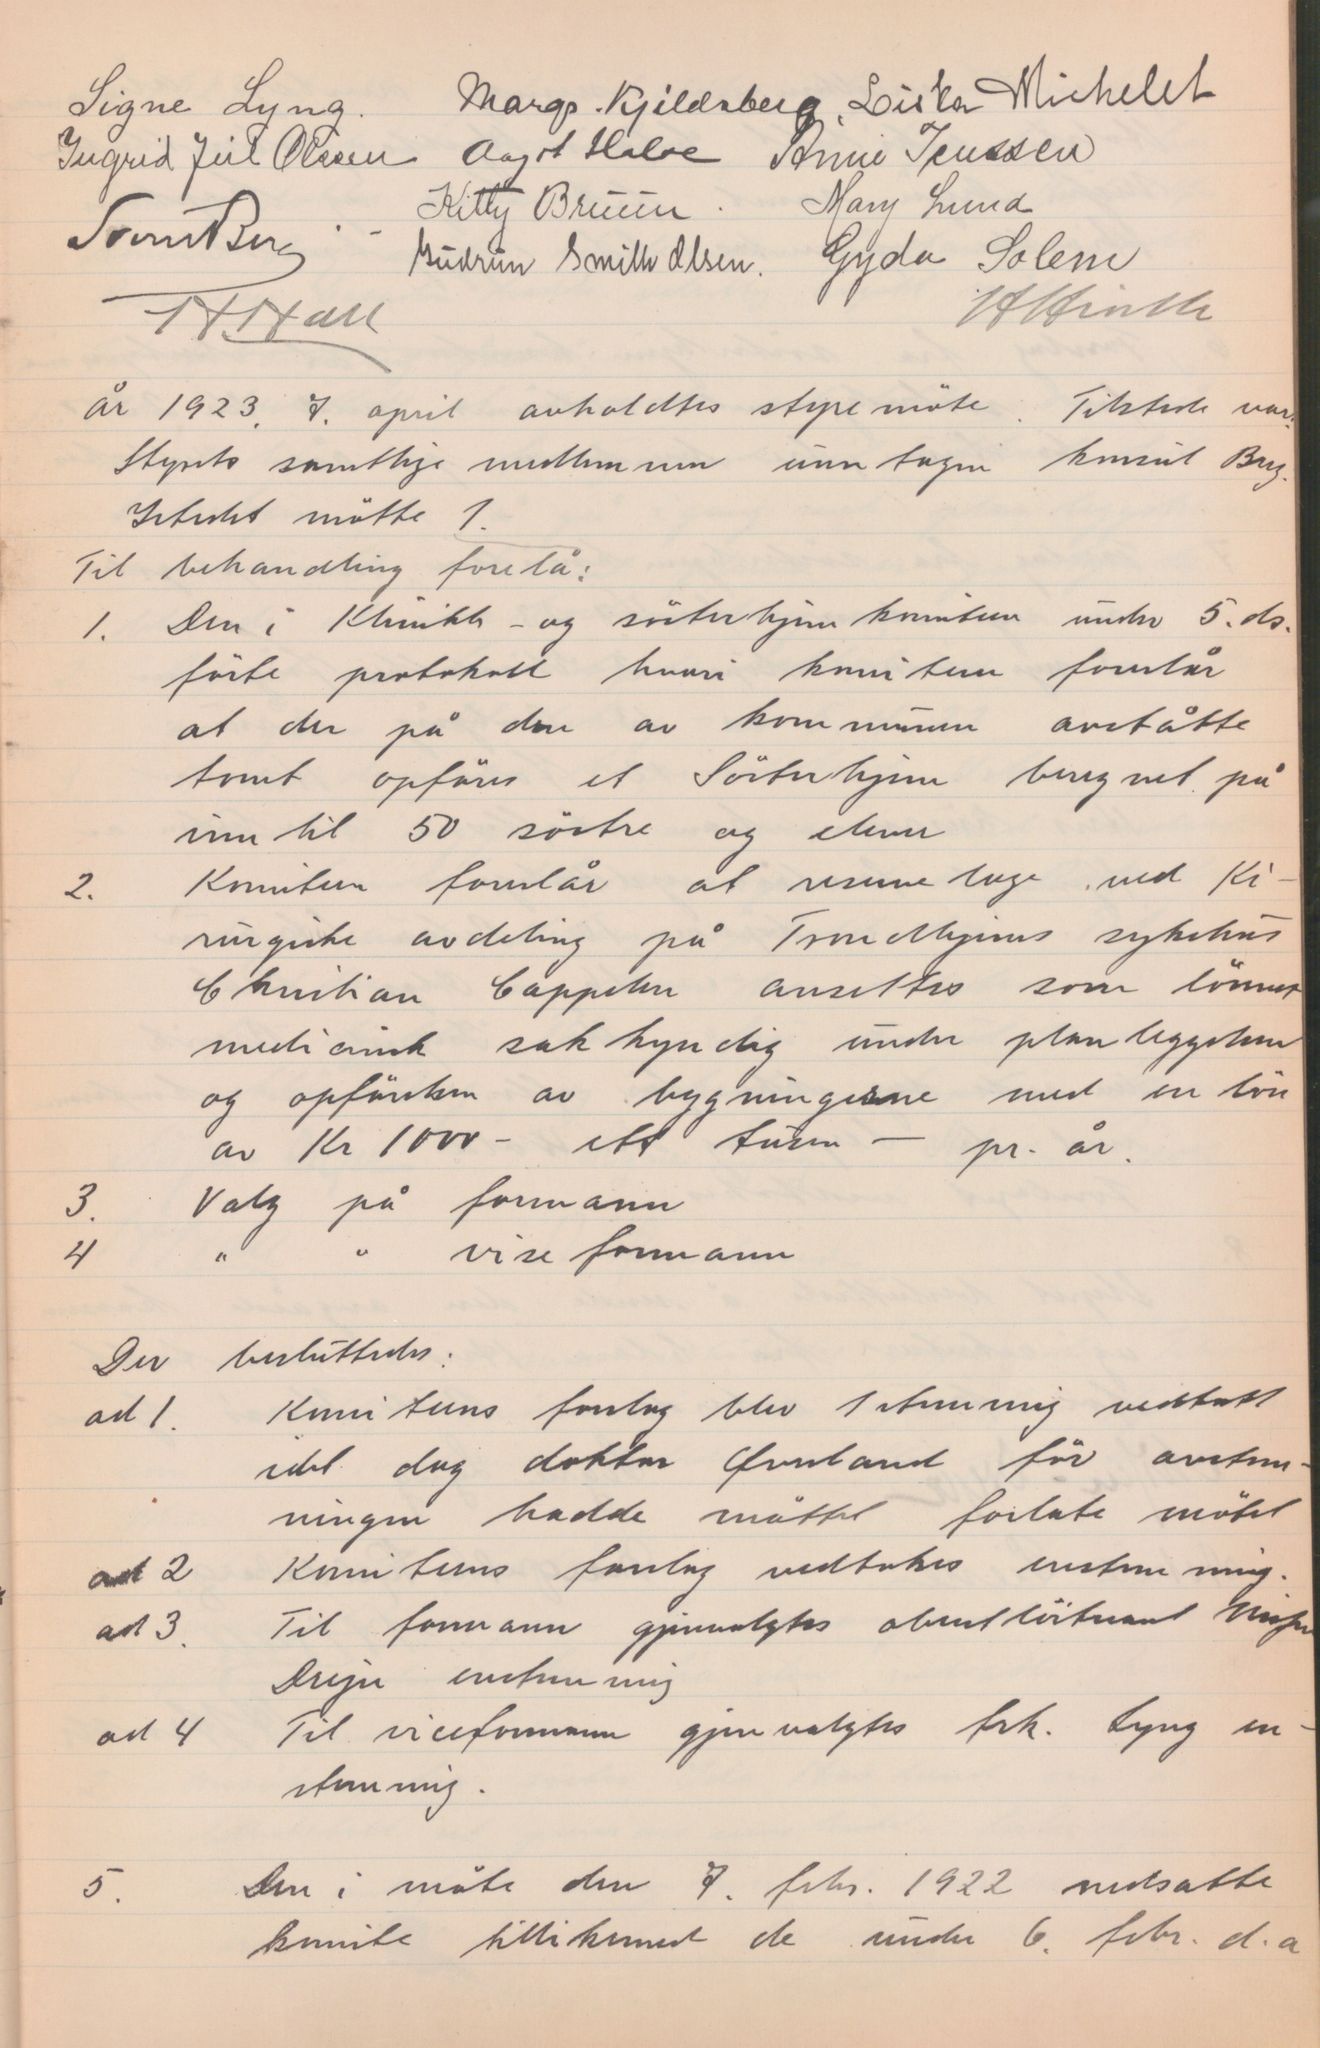 Signe Lyng. Margr. Kjeldsberg. Liska Michelet
Ingrid Juel Olssen Aagot Halse Anni Jenssen
Svend Berg Kitty Brüün. Mary Lund
Gudrun Smith Olsen. Gyda Solem
År 1923, 7. april avholdtes styremöte. Tilstede var:
Styrets samtlige medlemmer unntagen konsul Berg.
Istedet mötte 1.
Til behandling forelå:
1. Den i Klinikk- og sösterhjemkomiteen under 5. ds.
förte protokoll hvori komiteen foreslår
at der på den av kommunen avståtte
tomt opföres et Sösterhjem beregnet på
inntil 50 söstre og elever
2. Komiteen foreslår at reservelæge ved Ki-
rurgiske avdeling på Trondhjems sykehus
Christian Cappelen ansettes som lönnet
medicinsk sakkyndig under planleggelsen
og opförelsen av bygningerne med en lön
av Kr 1000- ett tusen - pr. år.
3. Valg på formann
4 " " viseformann
Der besluttedes:
ad 1. Komiteens forslag blev enstemmig vedtatt
idet dog doktor Øverland för avstem-
ningen hadde måttet forlate mötet
ad 2 Komiteens forslag vedtokes enstemmig.
ad 3. Til formann gjenvalgtes oberstlöitnant
Dreyer enstemmig
ad 4 Til viceformann gjenvalgtes frk. Lyng en-
stemmig.
5. Den i möte den 7. febr. 1922 nedsatte
komite tillikemed de under 6. febr. d.a